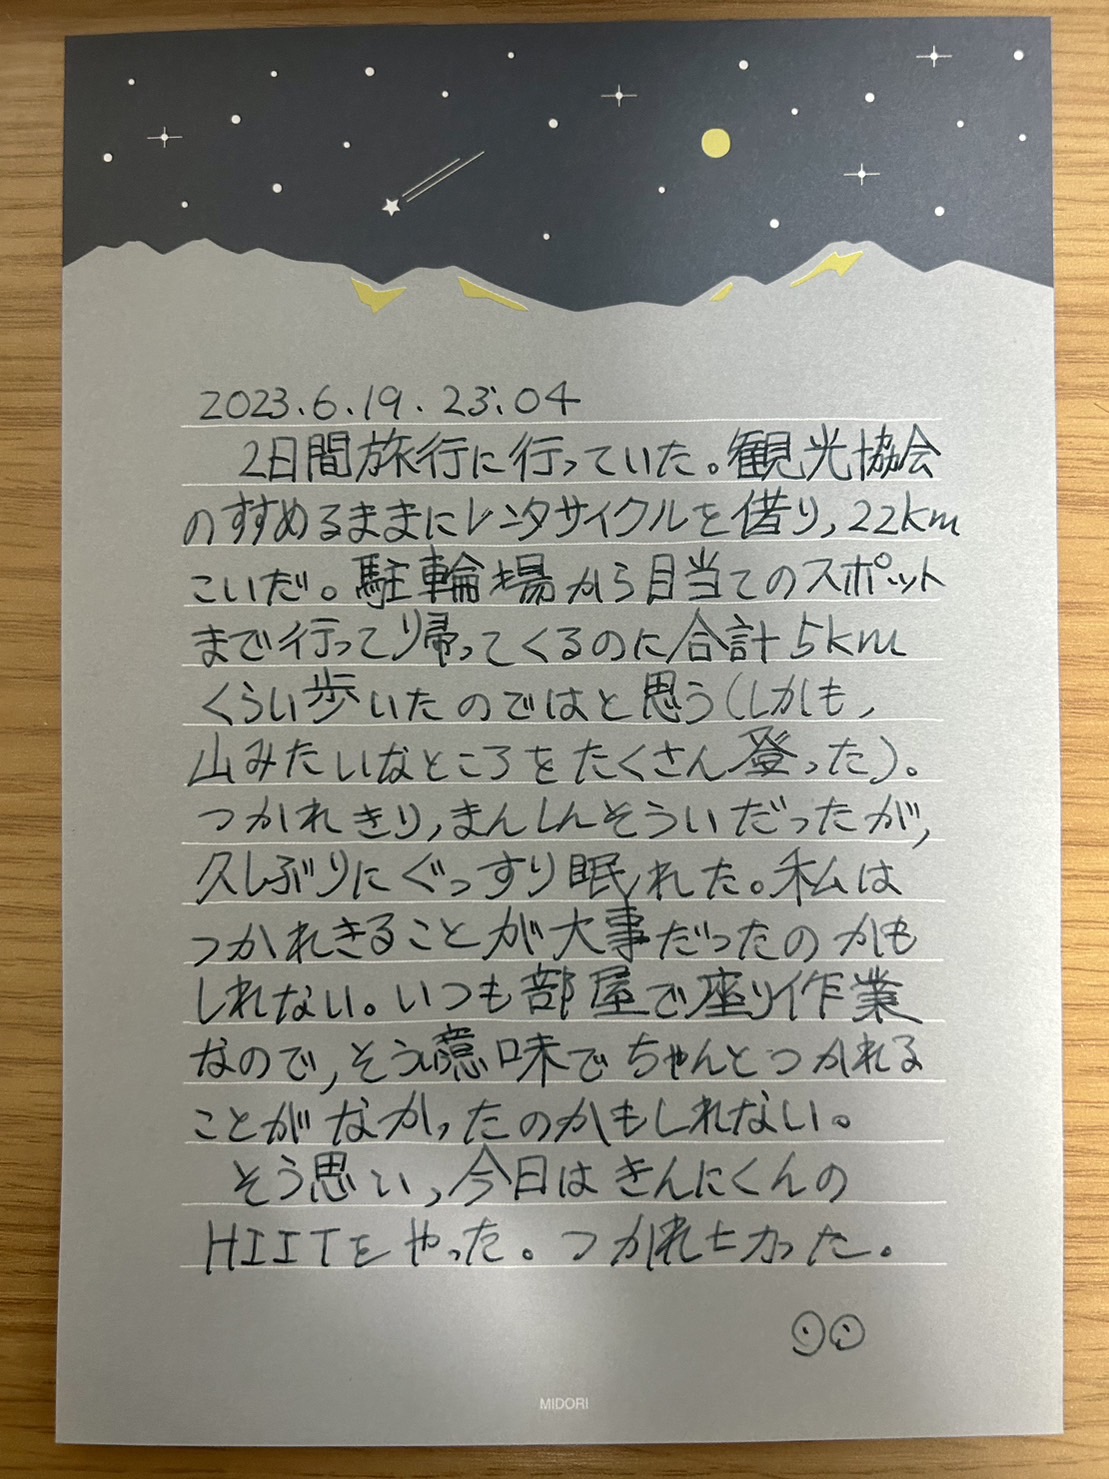 2023.6.19.23:04
2日間旅行に行っていた。観光協会
のすすめるままにレンタサイクルを借り,22km
こいだ。駐輪場から目当てのスポット
まで行って帰ってくるのに合計5km
くらい歩いたのではと思う(しかも,
山みたいなところをたくさん登った)。
つかれきり,まんしんそういだったが,
久しぶりにぐっすり眠れた。私は
つかれきることが大事だったのかも
しれない。いつも部屋で座り作業
なので,そう意味でちゃんとつかれる
ことがなかったのかもしれない。
そう思い,今日はきんにくんの
HIITをやった。つかれた。
MIDORI